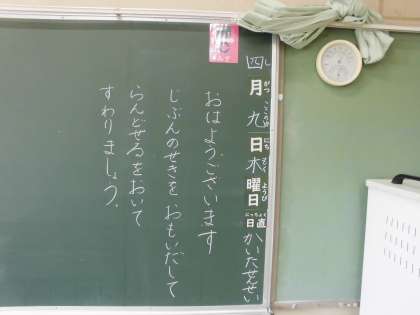 四月九日木曜日日直かいたせんせい
おはようございます
じぶんのせきを、おもいだして
らんどせるをおいて
すわりましょう。